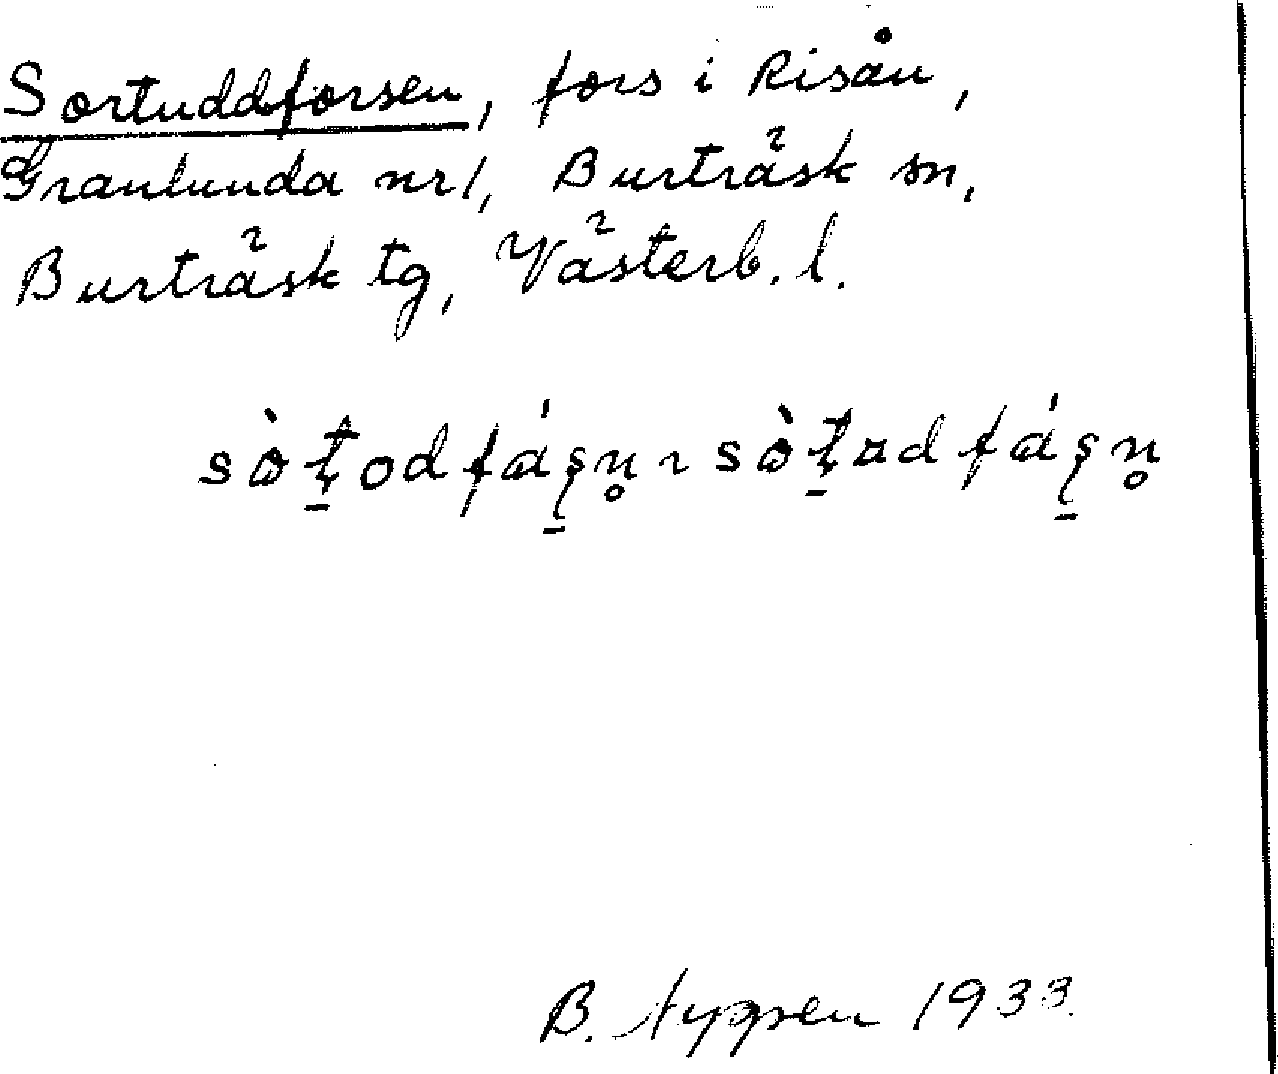 Sortuddforsen, fors i Risån,
Granlunda nr 1, Burträsk sn,
Burträsk tg, Västerb. l.
sò̱ʈodfáʂn̥ ~ sòʈɑdfáʂn̥
B. 1933.